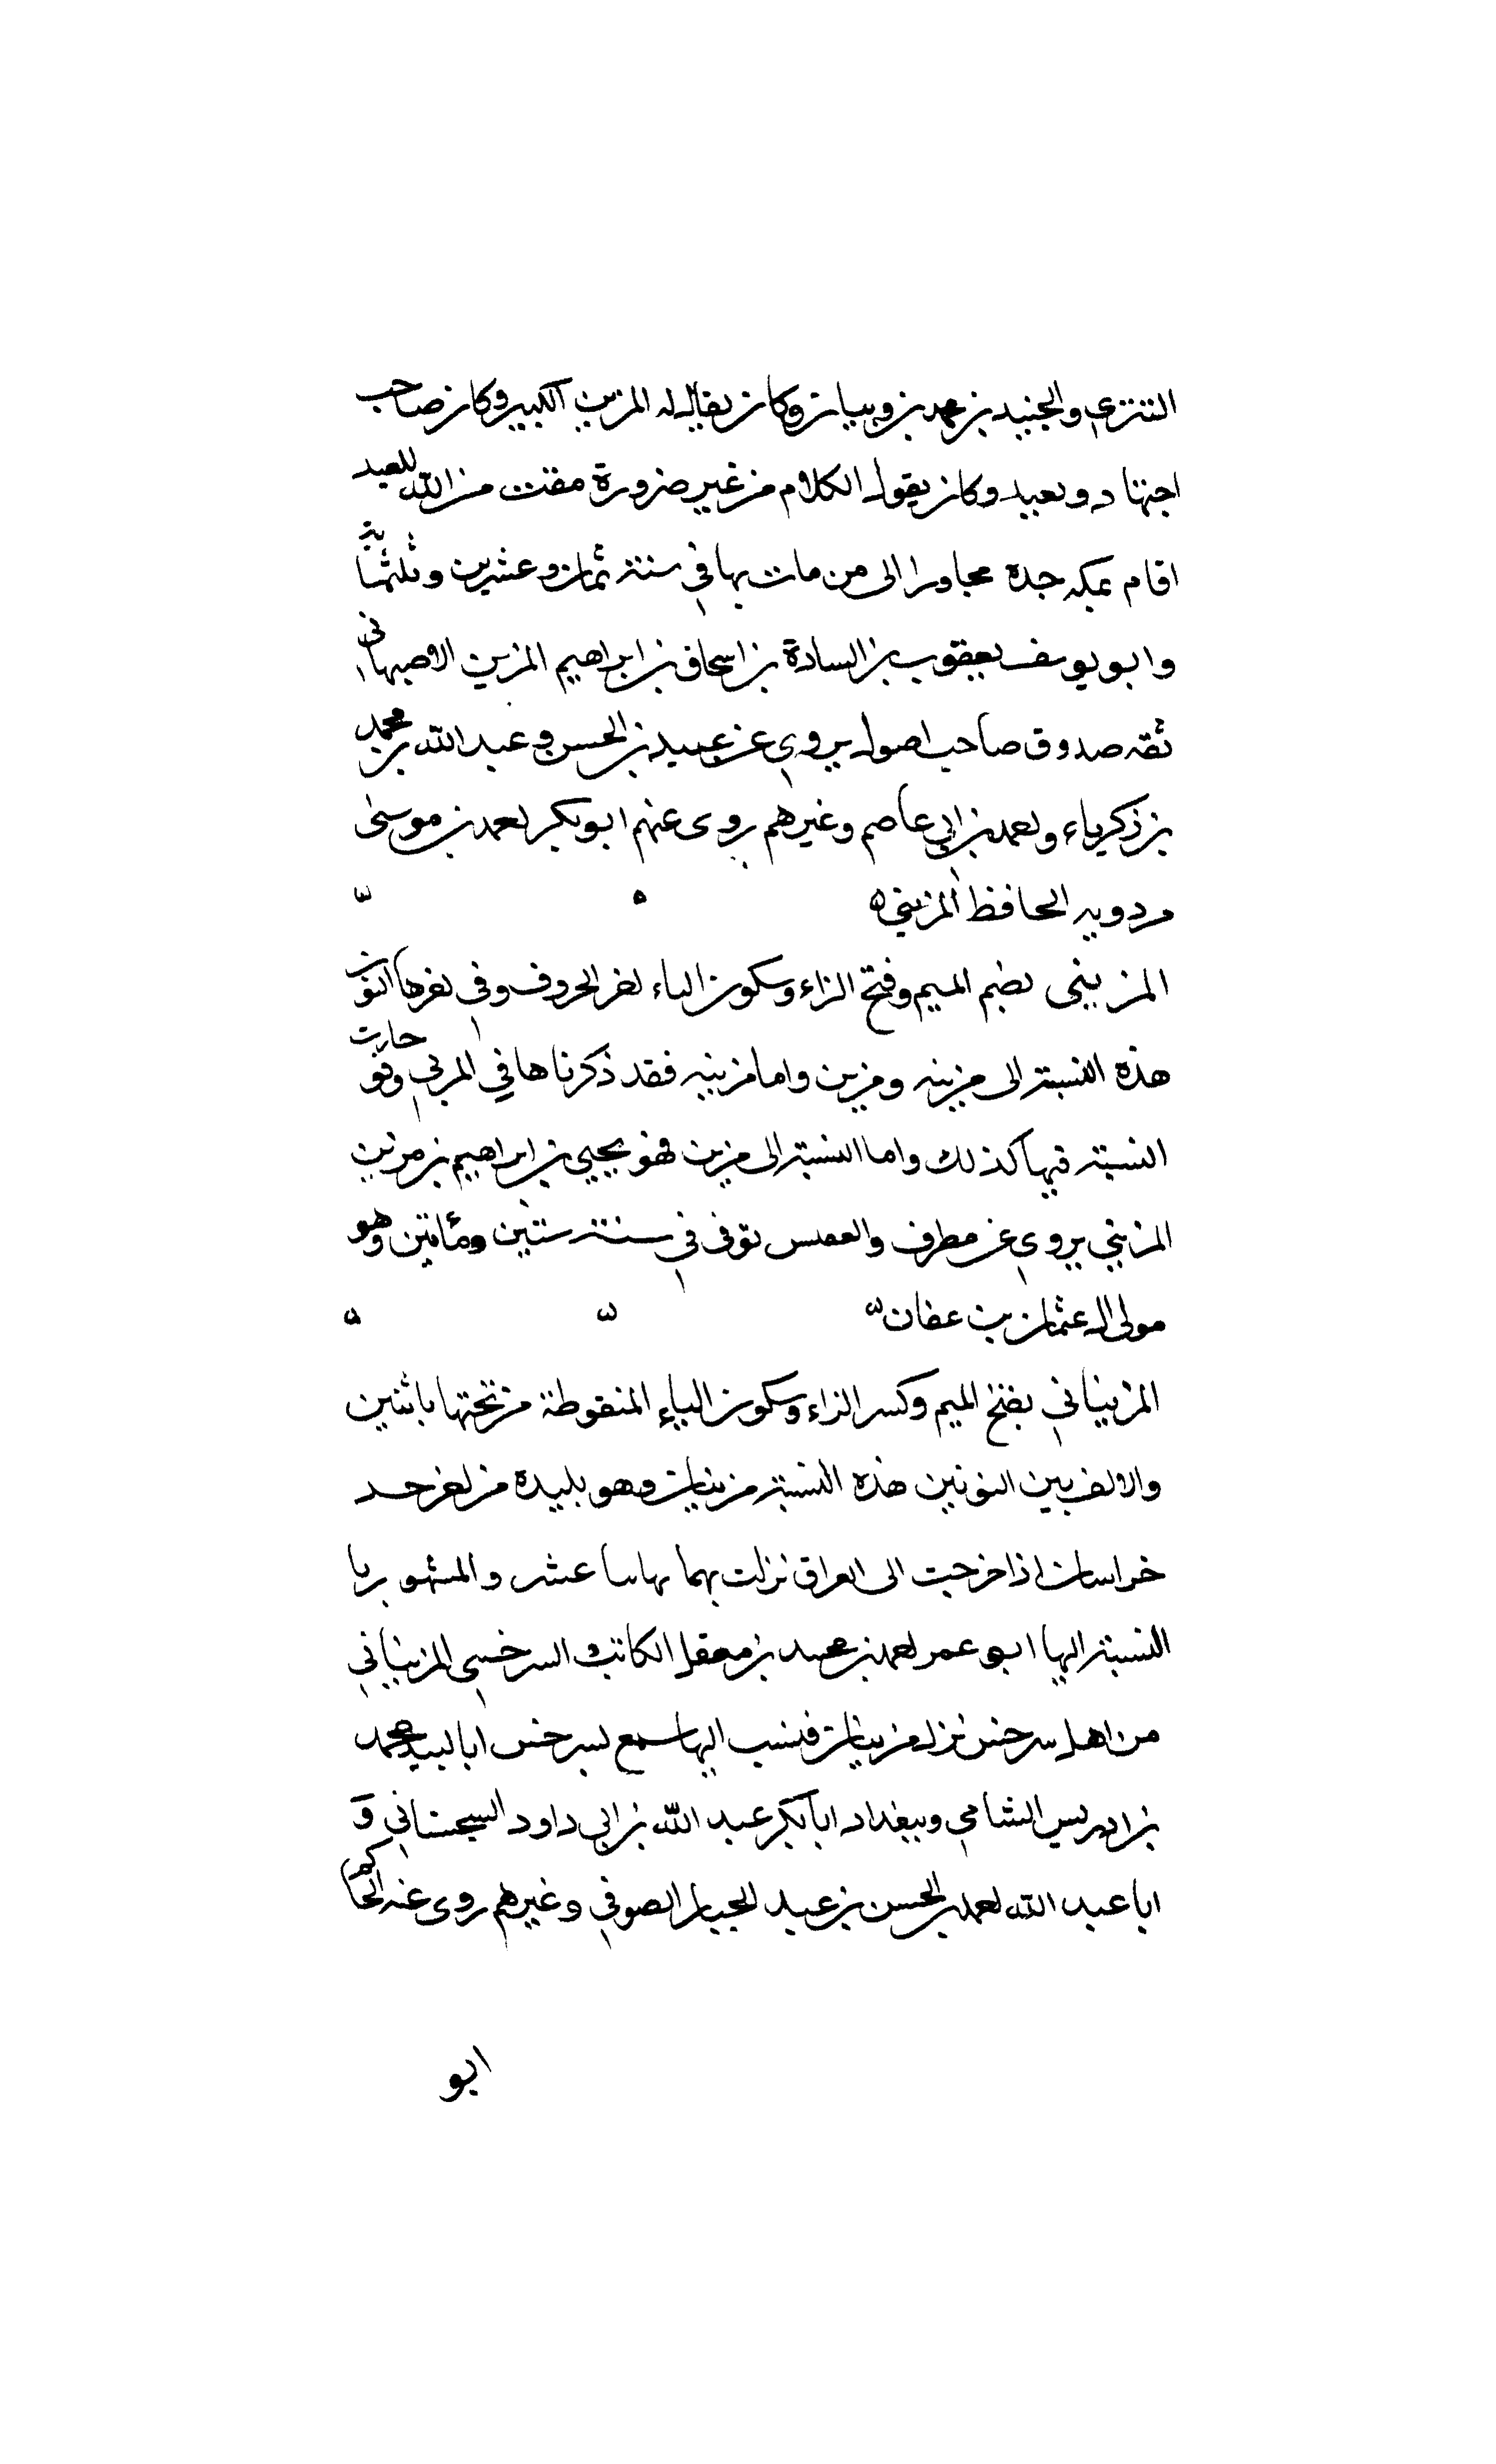 التستري والجنيد بن محمد بن وبنان وكان يقال له المزين الكبير وكان صاحب
اجتهاد وتعبد وكان يقول الكلام من غير ضرورة مقت من الله للعبد
اقام بمكه جده مجاورا الى من مات بها في سنة ثمان وعشرين وثلثمائة
وابو يوسف يعقوب بن السادة بن اسحاق بن ابراهيم المزين الاصبهاني
ثقه صدوق صاحب اصول يروي عن عبيد بن الحسن وعبد الله بن محمد
بن زكرياء واحمد بن ابي عاصم وغيرهم روى عنهم ابو بكر احمد بن موسى
مردويه الحافظ المزيني
المزيني بضم الميم وفتح الزاء وسكون الياء اخر الحروف وفي اخرها النون
هذه النسبة الى مزينه ومزين واما مزينه فقد ذكرناها في المزني وقد جاءت
النسبة فيها كذلك واما النسبة الى مزين فهو يحيى بن ابراهيم بن مزين
المزيني يروي عن مطرف والقعنبي توفى في سنة ستين ومائتين وهو
مولى ال عثمان بن عفان
المزيناني بفتح الميم وكسر الزاء وسكون الياء المنقوطة من تحتها باثنتين
والالف بين النونين هذه النسبة مزينان وهو بليدة من اخر حد
خراسان اذا خرجت الى العراق نزلت بهما عشر والمشهور با
النسبة اليها ابو عمر احمد بن محمد بن معقل الكاتب السرخسي المزيناني
من اهل سرخس نزل مزينان فنسب اليها سمع بسرخس ابا لبيد محمد
بن ادريس الشامي وببغداد ابا بكر عبد الله بن ابي داود السجستاني و
ابا عبد الله احمد بن الحسن بن عبد الجبار الصوفي وغيرهم روى عنه الحاكم
ابو